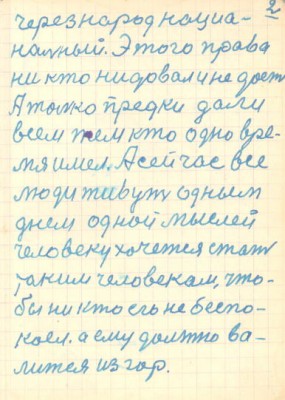 2
через народ нациа-
нальный. Этого права
ни кто нидовал и не дает
А толко предки дали
всем тем кто одно вре-
мя имел. А сейчас все
люди живут одным
днем одной мыслей
человеку хочется стат
таким человекам, что-
бы ни кто его не беспо-
коел. а ему должно ва-
лится из гор.